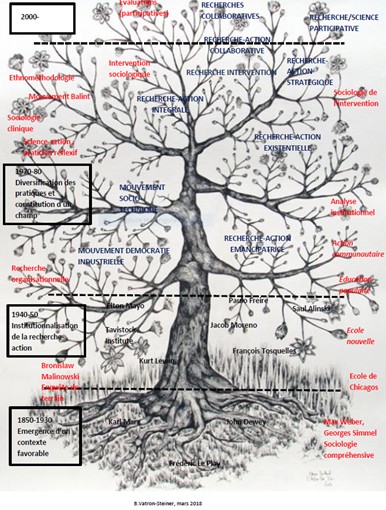 Evaluations
(participatives)
RECHERCHES
COLLABORATIVES
2000-
RECHERCHE/SCIENCE
PARTICIPATIVE
RECHERCHE-ACTION
COLLABORATIVE
Intervention
sociologique
RECHERCHE INTERVENTION
RECHERCHE-
ACTION
STRATEGIQUE
Ethnométhodologie
Mouvement Balint
RECHERCHE-ACTION
INTEGRALE
Sociologie de
l'intervention
Sociologie
clinique
Science-action
praticien réflexif
RECHERCHE-ACTION
EXISTENTIELLE
1970-80
Diversification des
pratiques et
constitution d'un
champ
MOUVEMENT
SOCIO-
TECHNIQUE
Analyse
institutionnel
MOUVEMENT DEMOCRATIE
INDUSTRIELLE
RECHERCHE-ACTION
EMANCIPATRICE
Action
communautaire
Recherche
organisationnelle
Education
populaire
Elton Mayo
Paolo Freire
Saul Alinsky
1940-50
Institutionnalisation
de la recherche
action
Tavistock
Institute
Jacob Moreno
Ecole
nouvelle
Kurt Lewin
François Tosquelles
Bronislaw
Malinowski
Enquête de
terrain
Ecole de
Chicagos
1850-1930
Emergence d'un
contexte
favorable
Karl Marx
John Dewey
Max Weber,
Georges Simmel
Sociologie
compréhensive
Frédéric Le Play
B.Vatron-Steiner, mars 2018